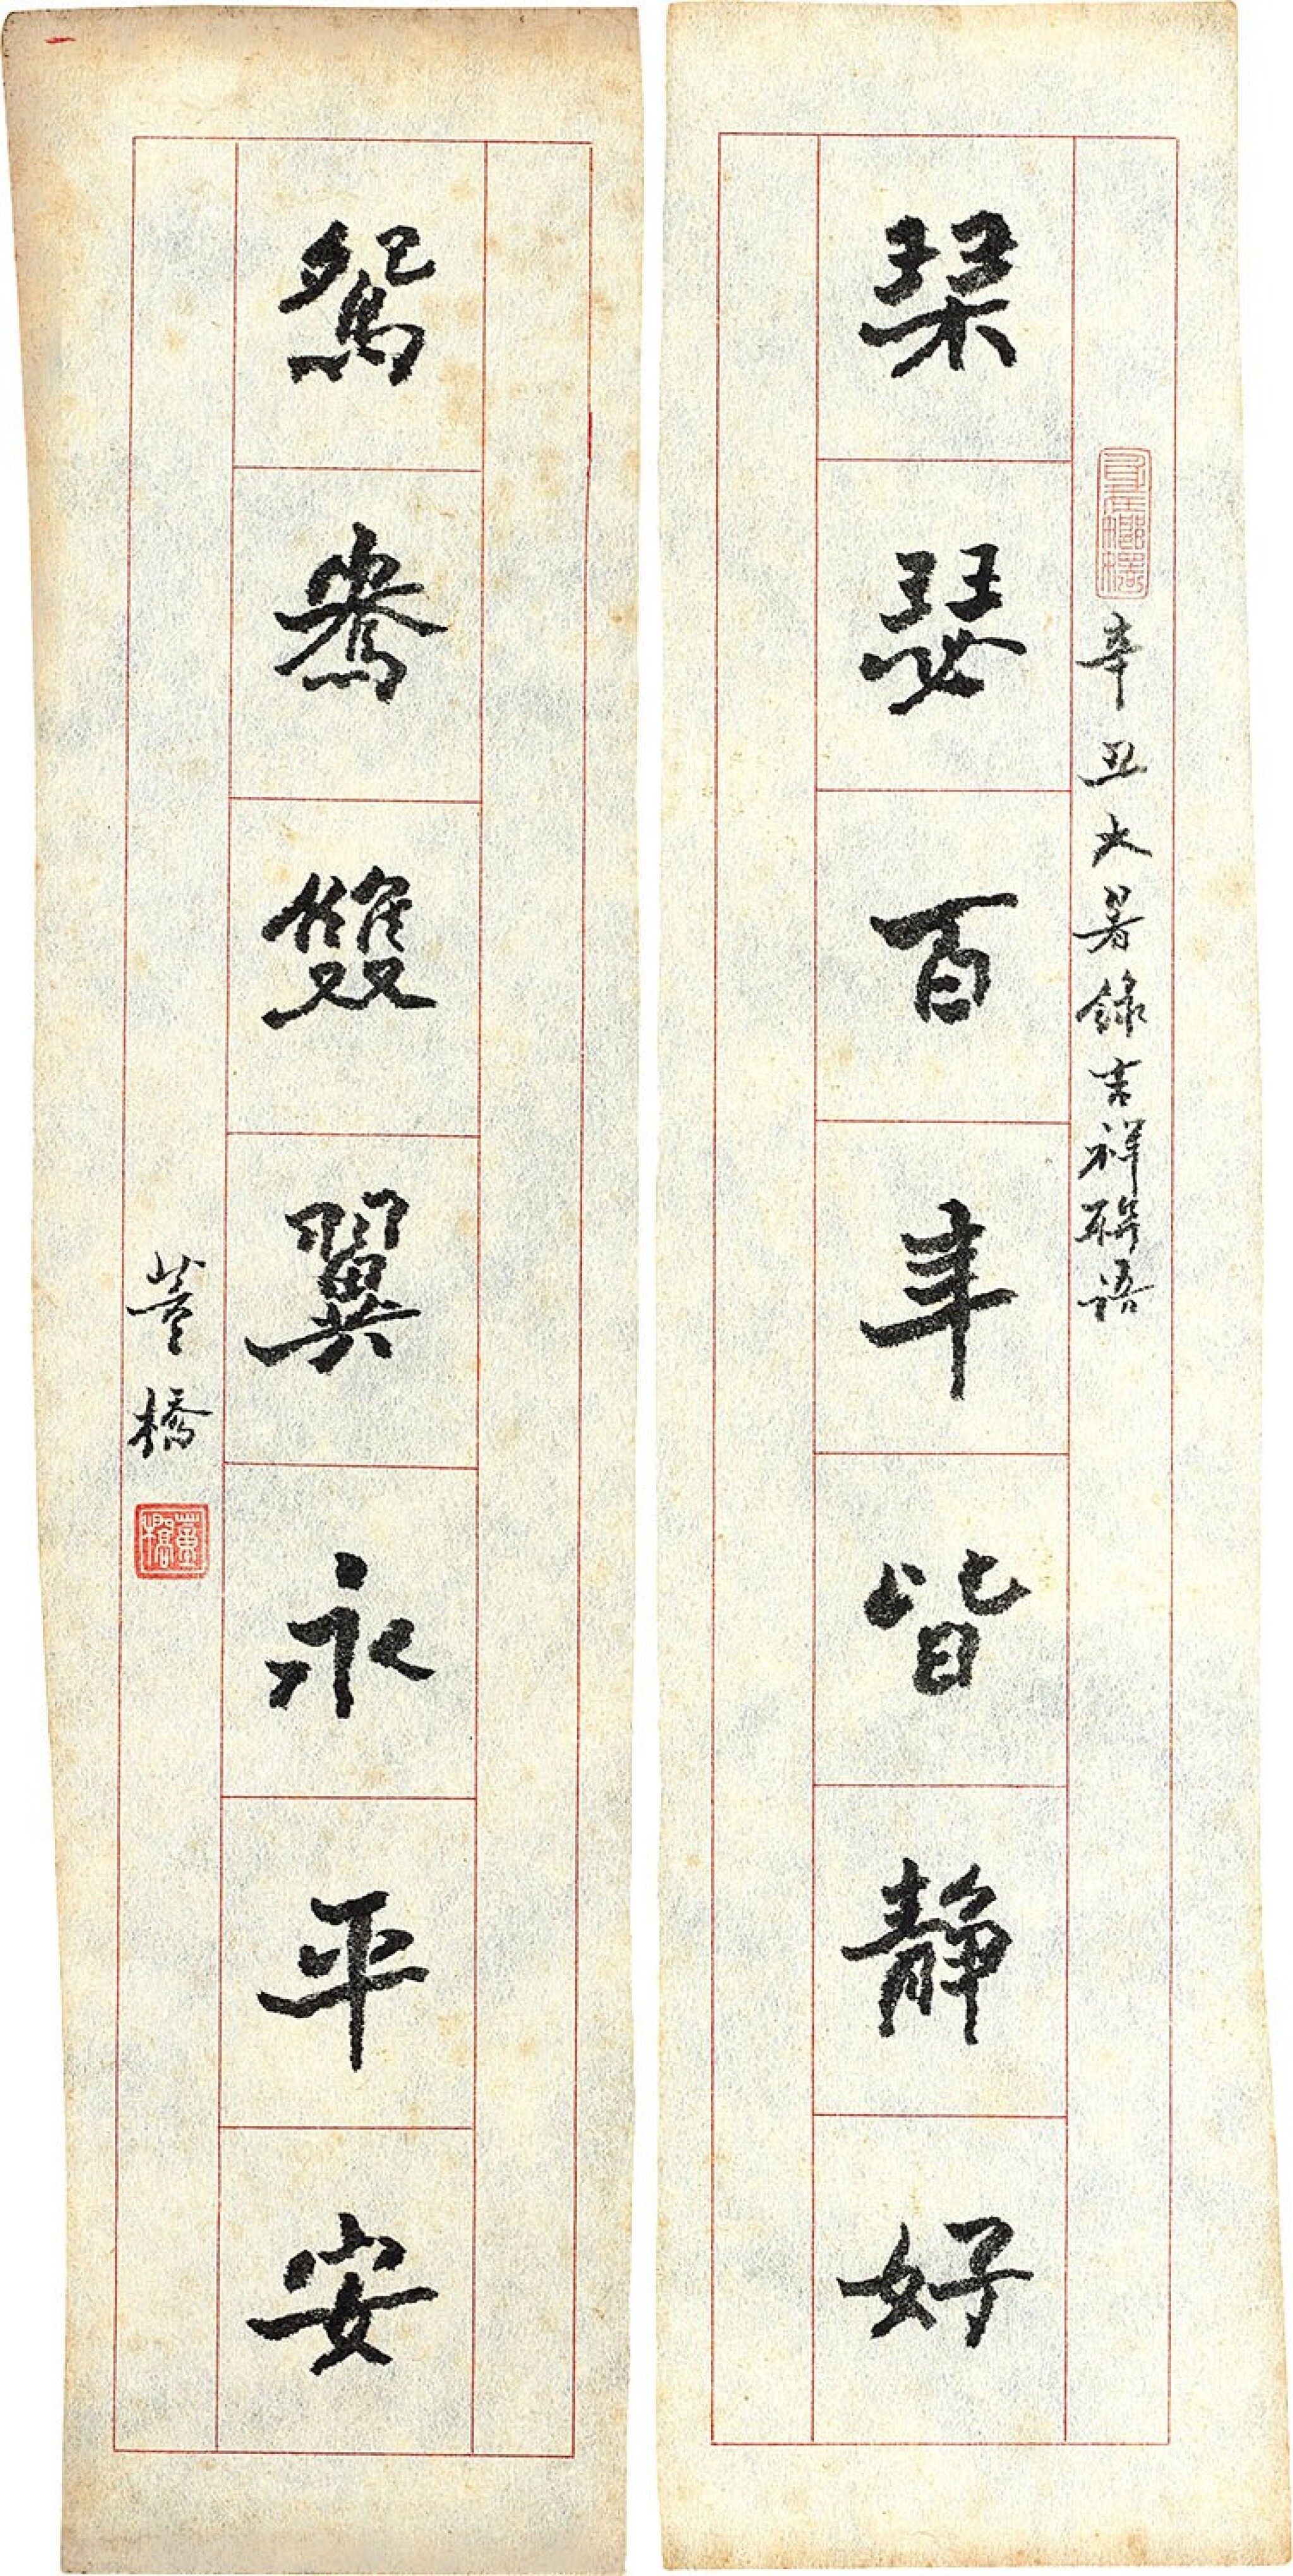 辛丑大暑錄吉祥聯語
琹瑟百年皆静好
鴛鴦雙翼永平安
董橋
董橋